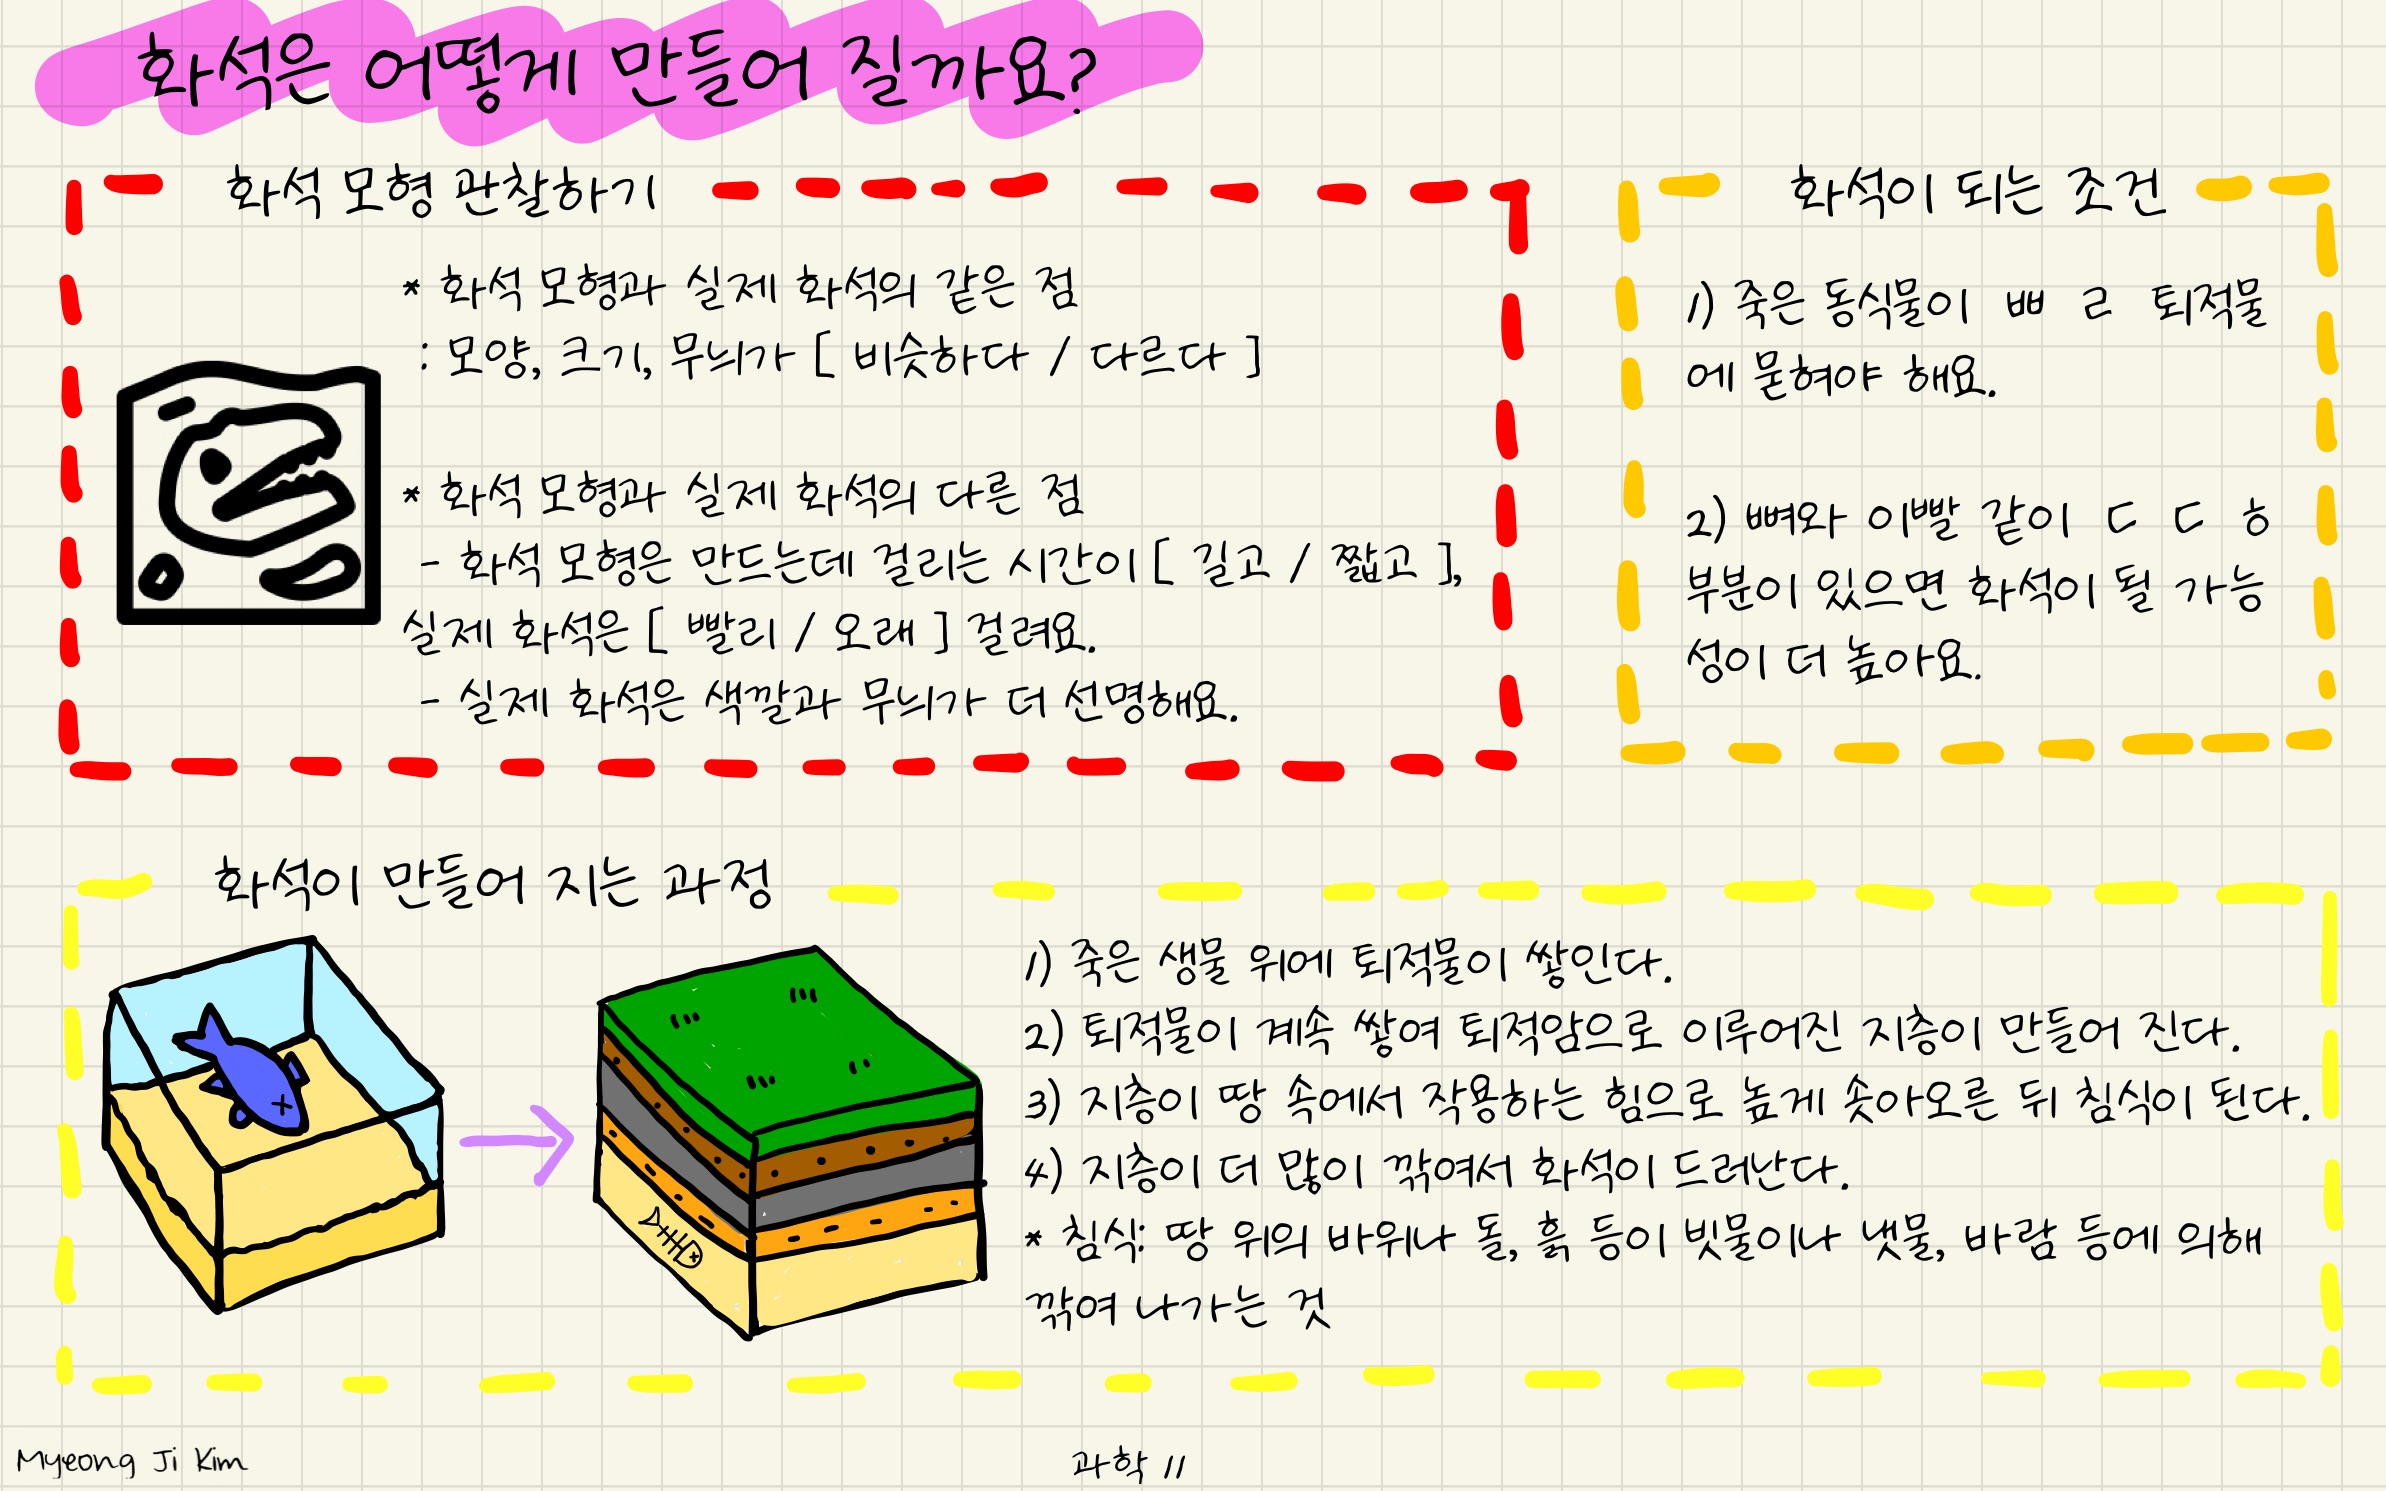 화석은 어떻게 만들어 질까요?
화석 모형 관찰하기
* 화석 모형과 실제 화석의 같은 점
: 모양, 크기, 무늬가 [ 비슷하다 / 다르다 ]
* 화석 모형과 실제 화석의 다른 점
- 화석 모형은 만드는데 걸리는 시간이 [ 길고 / 짧고 ],
실제 화석은 [ 빨리 / 오래 ] 걸려요.
- 실제 화석은 색깔과 무늬가 더 선명해요.
화석이 되는 조건
1) 죽은 동식물이 ㅃ ㄹ 퇴적물
에 묻혀야 해요.
2) 뼈와 이빨 같이 ㄷ ㄷ ㅎ
부분이 있으면 화석이 될 가능
성이 더 높아요.
화석이 만들어 지는 과정
1) 죽은 생물 위에 퇴적물이 쌓인다.
2) 퇴적물이 계속 쌓여 퇴적암으로 이루어진 지층이 만들어 진다.
3) 지층이 땅 속에서 작용하는 힘으로 높게 솟아오른 뒤 침식이 된다.
4) 지층이 더 많이 깎여서 화석이 드러난다.
* 침식: 땅 위의 바위나 돌, 흙 등이 빗물이나 냇물, 바람 등에 의해
깎여 나가는 것
Myeong Ji Kim
과학 11